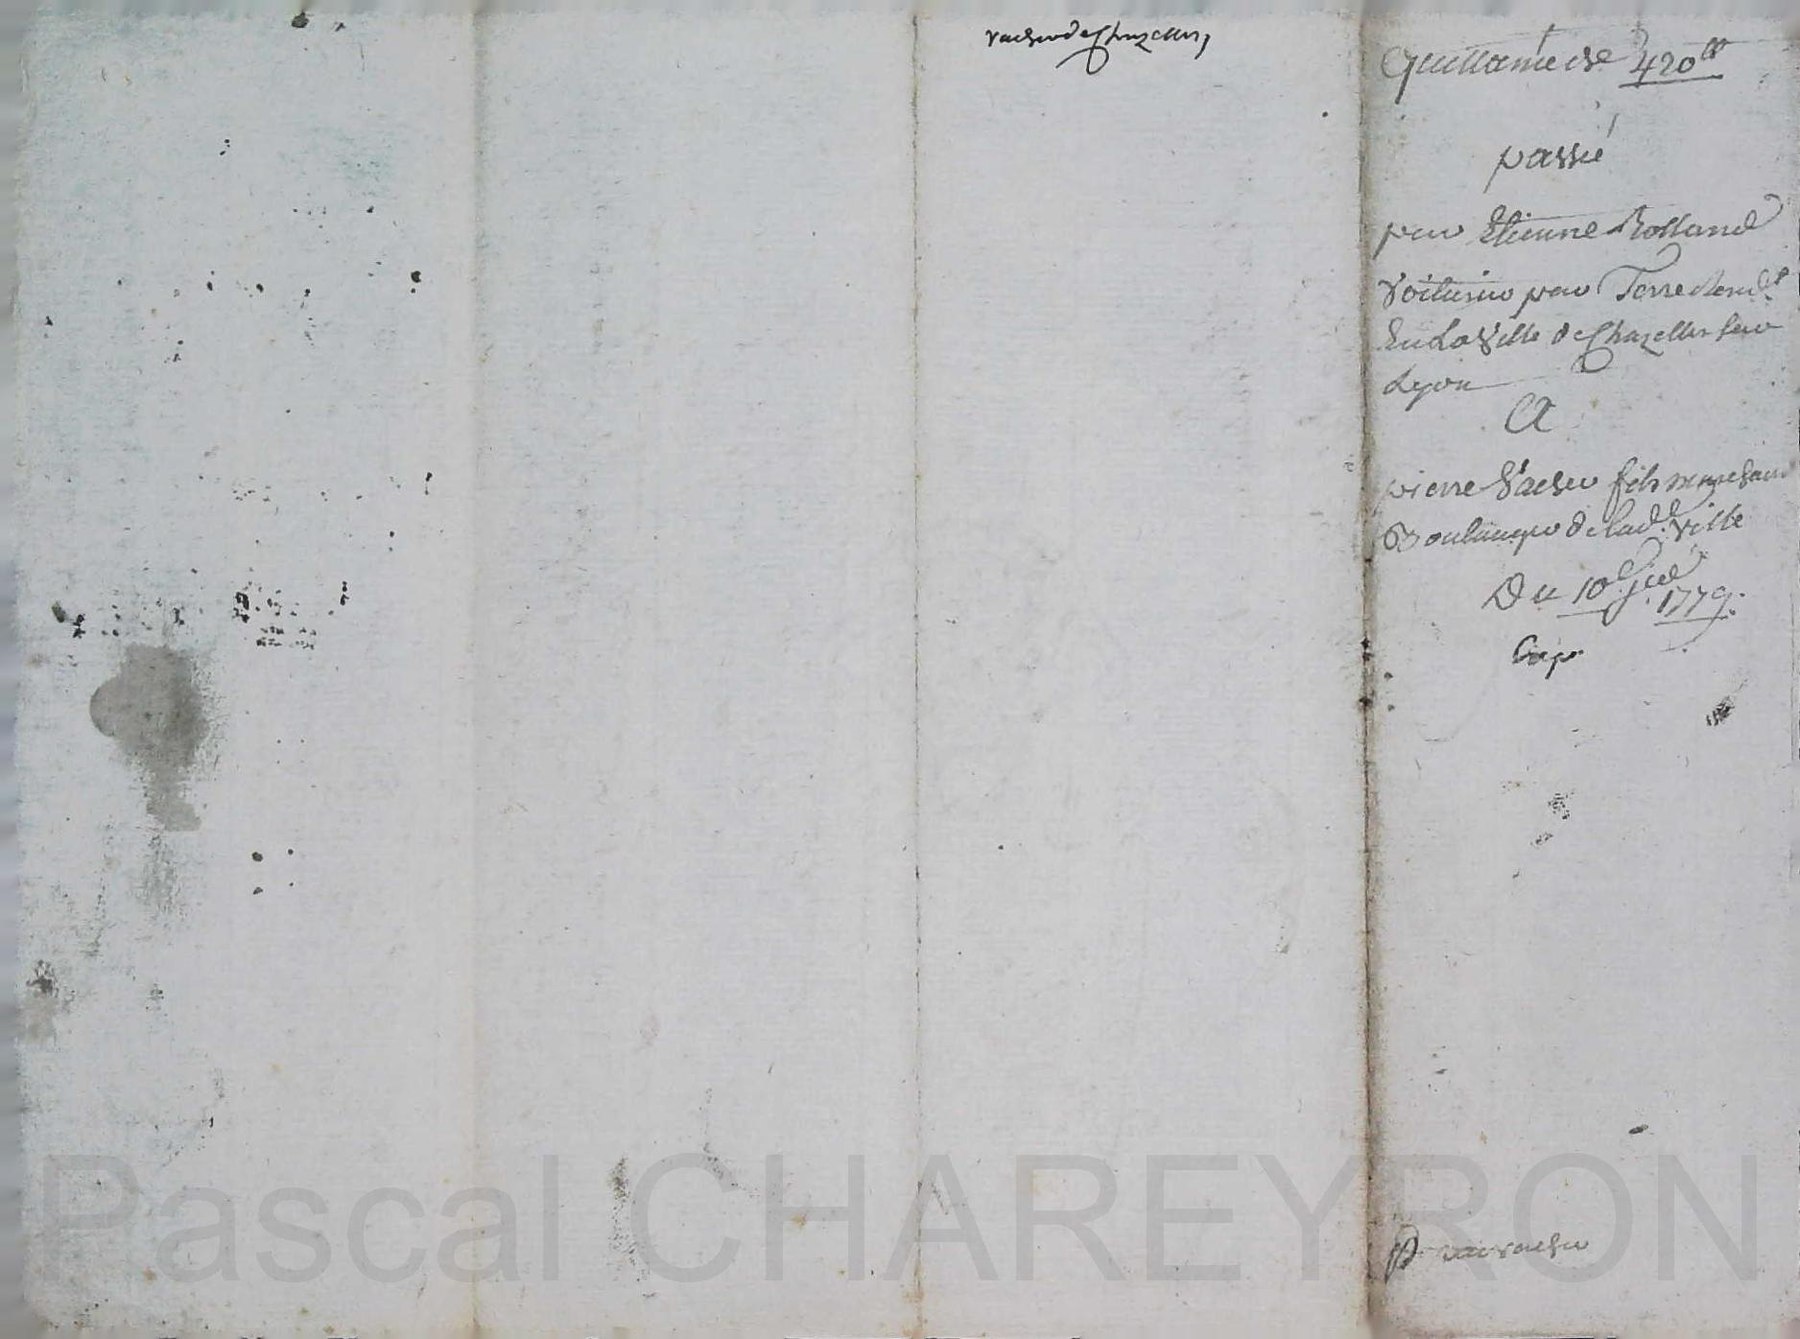 vacher de Chazelles
Quittance de 420 tt
passé
par Etienne Rolland
Voiturier par Terre Demt
En La Ville de Chazelles sur
Lyon
A
pierre Vacher fils marchand
Boulanger de lad. Ville
Du 10e Jer 1779.
Exp.
Pascal CHAREYRON
vacher